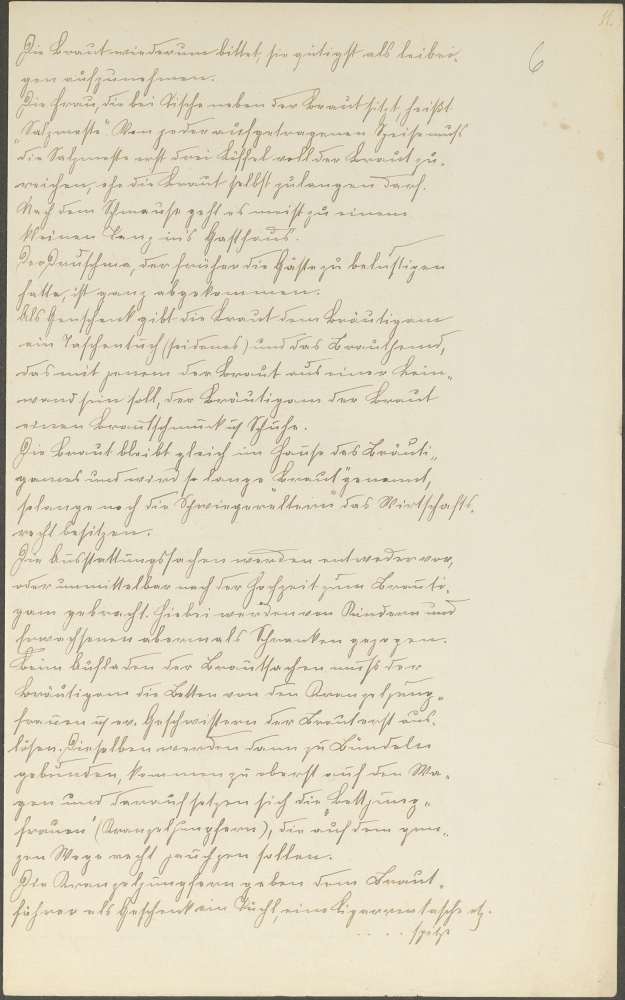 11.
6
Die Braut wiederum bittet, sie gütigst als leibei-
gen aufzunehmen.
Die Frau, die bei Tische neben der Braut sitzt, heißt
"Salzmeste". Von jeder aufgetragenen Speise muß
die Salzmeste erst drei Löffel voll der Braut zu-
reichen, ehe die Braut selbst zulangen darf.
Nach dem Schmause geht es meist zu einem
kleinen Tanz in's Gasthaus.
Der Druschma, der früher die Gäste zu belustigen
hatte, ist ganz abgekommen.
Als Geschenk gibt die Braut dem Bräutigam
ein Taschentuch (seidenes) und das Brauthemd,
das mit jenem der Braut aus einer Lein-
wand sein soll, der Bräutigam der Braut
einen Brautschmuck u Schuhe.
Die Braut bleibt gleich im Hause des Bräuti-
gams und wird so lange "Braut" genannt,
solange noch die Schwiegerältern das Wirtschafts-
recht besitzen.
Die Ausstattungssachen werden entweder vor,
oder unmittelbar nach der Hochzeit zum Bräuti-
gam gebracht. Hiebei werden von Kindern und
Erwachsenen abermals Schranken gezogen.
Beim Aufladen der Brautsachen muß der
Bräutigam die Betten von den Kranzeljung-
frauen u ev. Geschwistern der Braut erst aus-
lösen. Dieselben werden dann zu Bündeln
gebunden, kommen zu oberst auf den Wa-
gen und darauf setzen sich die "Bettjung-
frauen" (Kranzeljungfern), die auf dem gan-
zen Wege recht jauchzen sollen.
Die Kranzeljungfern geben dem Braut-
führer als Geschenk ein Tuchl, eine Cigarrentasche etz.
spitze